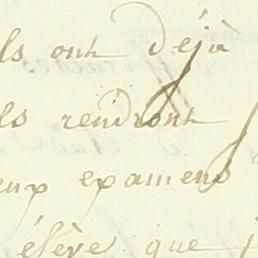 ils ont déjà
ils rendront
eux examens
élève que j